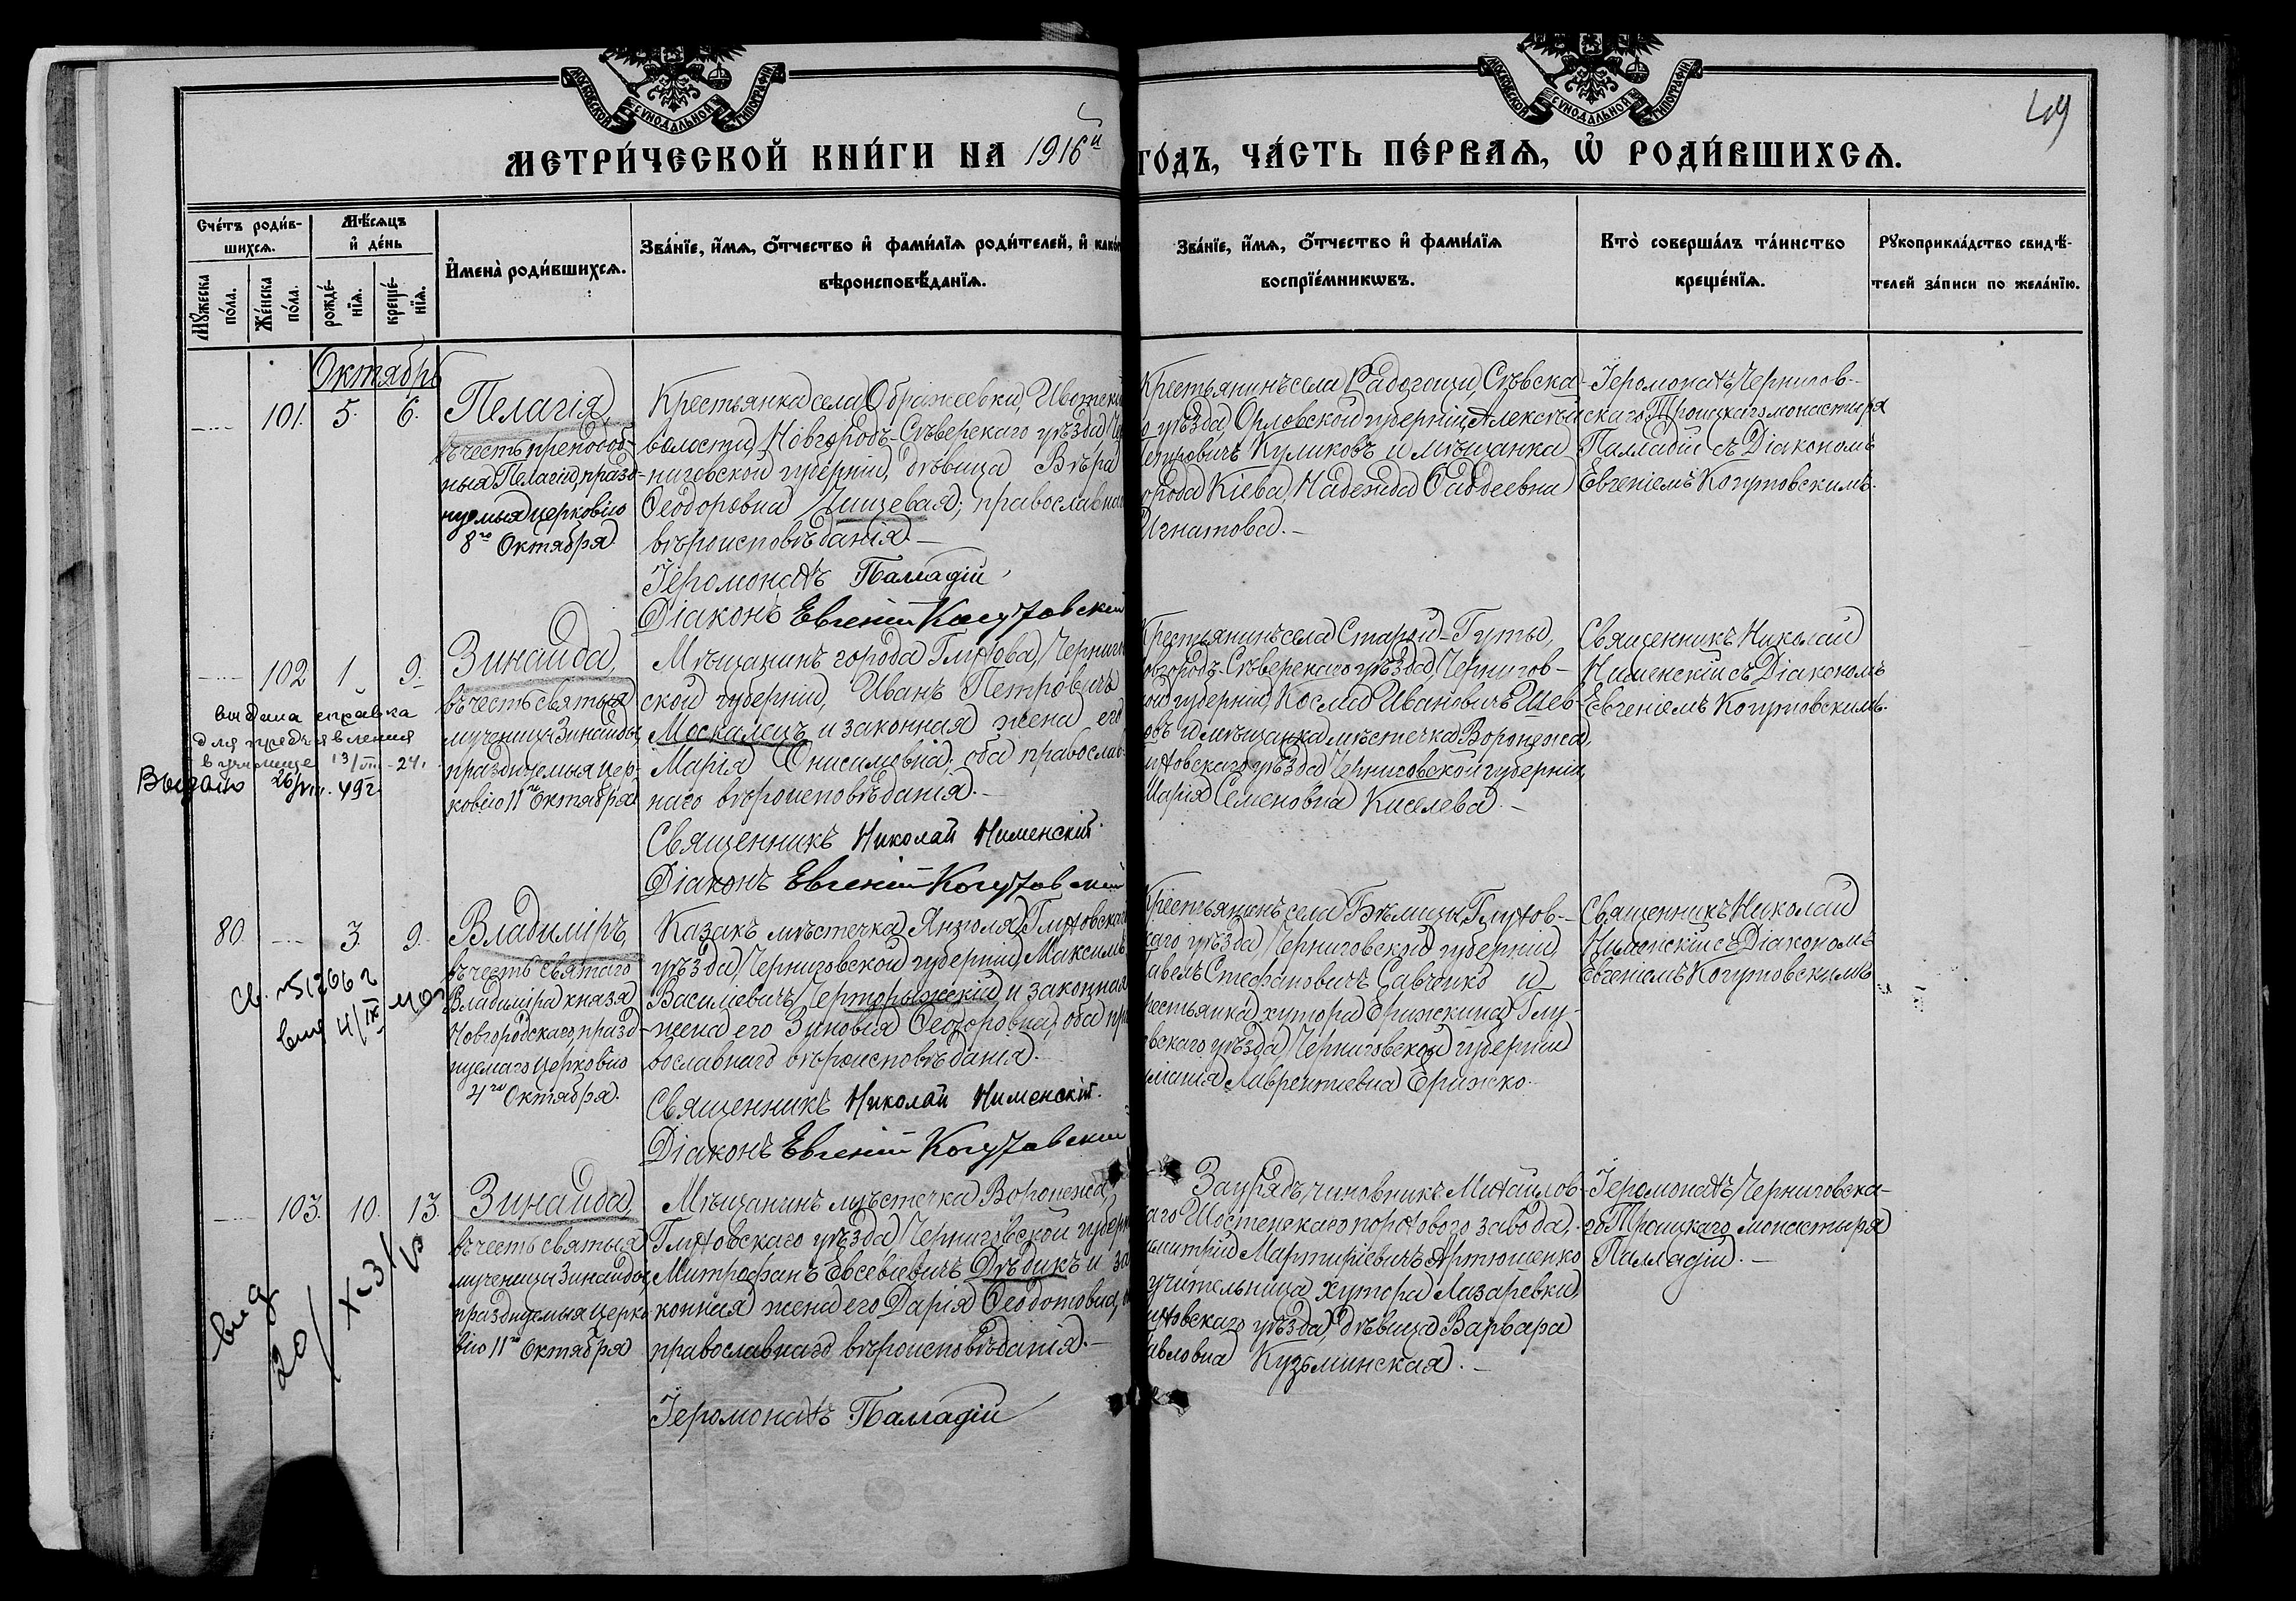 МОСКОВСКОЙ СѴНОДАЛЬНОЙ ТИПОГРАФІИ
МОСКОВСКОЙ СѴНОДАЛЬНОЙ ТИПОГРАФІИ
49
МЕТРИ́ЧЕСКОЙ КНИ́ГИ НА 1916й
ГО́ДЪ, ЧА́СТЬ ПЕ́РВАѦ, Ѡ҆ РОДИ́ВШИХСѦ.
Сче́тъ роди́в-
шихсѧ.
Мꙋ́жеска
по́ла.
Же́нска
по́ла.
Мѣ́сѧцъ
и҆ де́нь
рожде́-
нїѧ.
креще́-
нїѧ.
И҆мена̀ роди́вшихсѧ.
Зва́нїе, и҆́мѧ, ѻ҆́тчество и҆ фами́лїѧ роди́телей, и҆ како́г
вѣроисповѣ́данїѧ.
Зва́нїе, и҆́мѧ, ѻ҆́тчество и҆ фами́лїѧ
воспрїе́мникѡвъ.
Кто̀ соверша́лъ та́инство
креще́нїѧ.
Рꙋкоприкла́дство свидѣ́-
телей за́писи по жела́нїю.
Октябрь
101. 5. 6.
Пелагія,
въ честь преподоб-
ныя Пелагіи, празд-
нуемыя церковію
8го Октября
Крестьянка села Ображеевки, Ивотской
волости, Новгородъ-Сѣверскаго уѣзда, Чер
ниговской губерніи, дѣвица Вѣра
Ѳеодоровна Пищевая; православнаго
вѣроисповѣданія.
Іеромонахъ Палладій
Діаконъ Евгеній Когутовскій
Крестьянинъ села Радогощи, Сѣвска-
о уѣзда, Орловской губерніи, Алексѣй
Петровичъ Куликовъ и мѣщанка
города Кіева, Надежда Ѳаддеевна
Игнатова.
Іеромонахъ Чернигов-
скаго Троицкаго монастыря
Палладій съ Діакономъ
Евгеніемъ Когутовскимъ.
102 1 9.
выдана справка
для предъявления
в училище 13/VIII-24г.
Выдано 26/VIII. 49г.
Зинаида,
въ честь святыя
мученицы Зинаиды,
празднуемыя цер-
ковію 11го Октября
Мѣщанинъ города Глухова, Чернигов
ской губерніи, Иванъ Петровичъ
Москалецъ и законная жена его
Марія Онисимовна; оба православ-
наго вѣроисповѣданія.
Священникъ Николай Нименскій.
Діаконъ Евгеній Когутовскій
Крестьянинъ села Старой-Гуты,
овгородъ-Сѣверскаго уѣзда, Чернигов-
кой губерніи, Косма Ивановичъ Шев-
овъ и мѣщанка мѣстечка Воронежа,
луховскаго уѣзда, Черниговской губерніи,
Марія Семеновна Киселева.
Священникъ Николай
Нименскій съ Діакономъ
Евгеніемъ Когутовскимъ.
80. 3. 9.
Св. №512662
выд 4/IX 40г
Владиміръ,
въ честь святаго
Владиміра князя
Новгородскаго, празд-
нуемаго церковію
4го Октября.
Казакъ мѣстечка Янполя, Глуховскаго
уѣзда, Черниговской губерніи, Максимъ
Василіевичъ Черторыжскій и законная
жена его Зиновія Ѳеодоровна; оба пра
вославнаго вѣроисповѣданія.
Священникъ Николай Нименскій.
Діаконъ Евгеній Когутовскій
Крестьянинъ села Бѣлицы, Глухов-
каго уѣзда, Черниговской губерніи,
авелъ Стефановичъ Савченко и
рестьянка хутора Ерижкина, Глу-
вскаго уѣзда, Черниговской губерніи
Лаврентіевна Ерижко.
Священникъ Николай
Нименскій съ Діакономъ
Евгеніемъ Когутовскимъ
103. 10. 13.
выд
20/X-31
Зинаида,
въ честь святыя
мученицы Зинаиды,
празднуемыя церко
вію 11го Октября
Мѣщанинъ мѣстечка Воронежа,
Глуховскаго уѣзда, Черниговской губерн
Митрофанъ Евсевіевичъ Дѣдикъ и за
конная жена его Дарія Ѳеодотовна, о
православнаго вѣроисповѣданія.
Іеромонахъ Палладій
Заурядъ чиновникъ Михайлов-
каго Шостенскаго порохового завода,
митрій Мартиріевичъ Артюшенко
учительница хутора Лазаревки,
луховскаго уѣзда, дѣвица Варвара
авловна Кузьминская.
Іеромонахъ Черниговска-
го Троицкаго монастыря
Палладій.